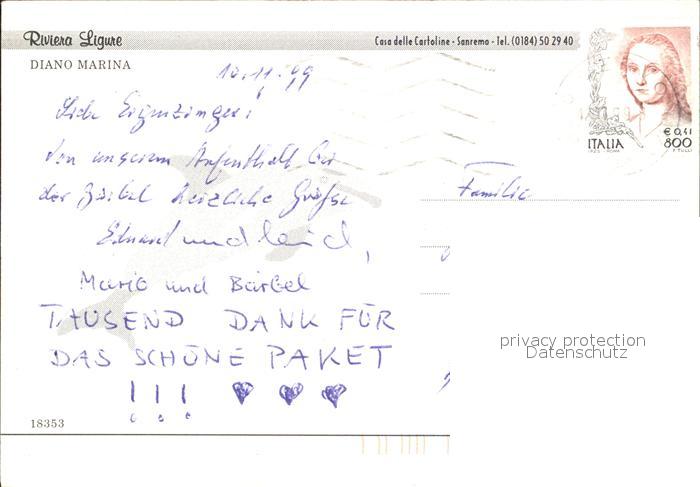 Riviera Ligure
Casa delle Cartoline - Sanremo - Tel. (0184) 50 29 40
DIANO MARINA
10.11.99
Liebe
Von unserem Aufenthalt bei
der Bärbel herzliche Grüße
Eduard und
Mario und Bärbel
TAUSEND DANK FÜR
DAS SCHÖNE PAKET
!!! ♥ ♥ ♥
18353
Familie
€ 0,41
ITALIA 800
privacy protection
Datenschutz